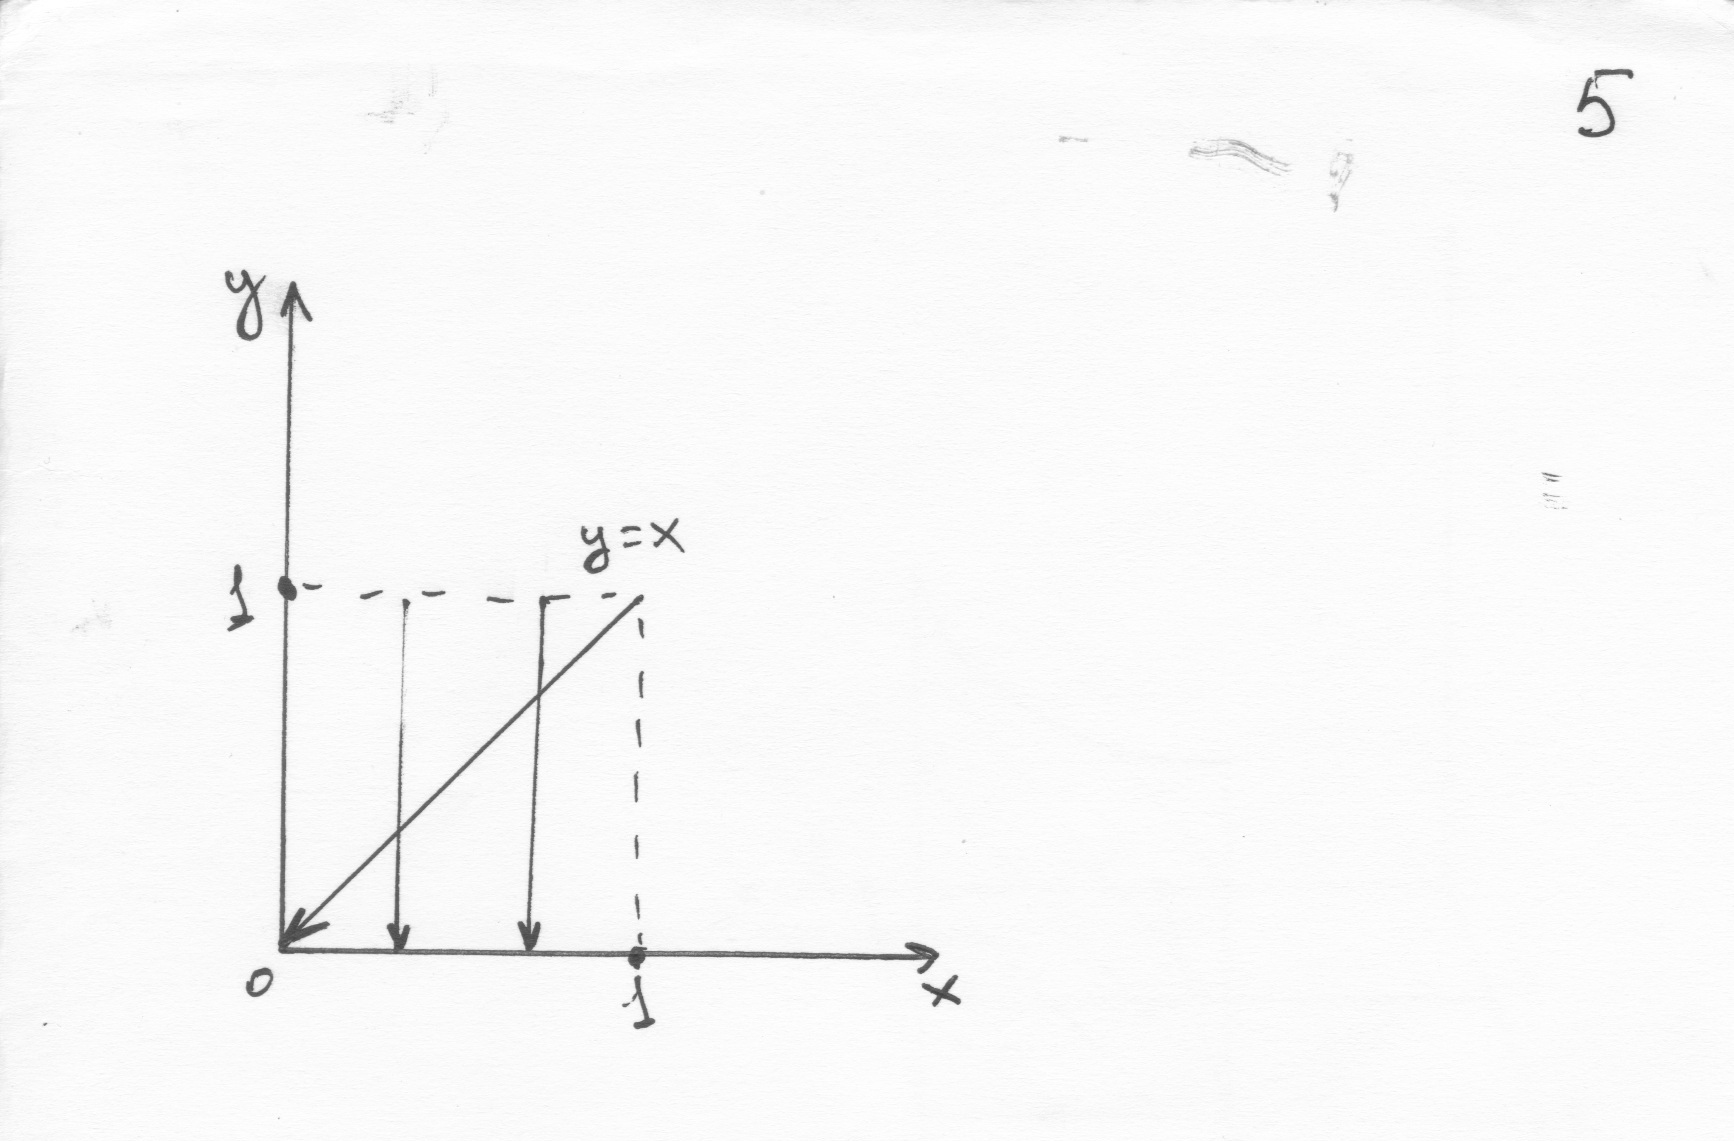 5
y
y=x
1
0
1
x